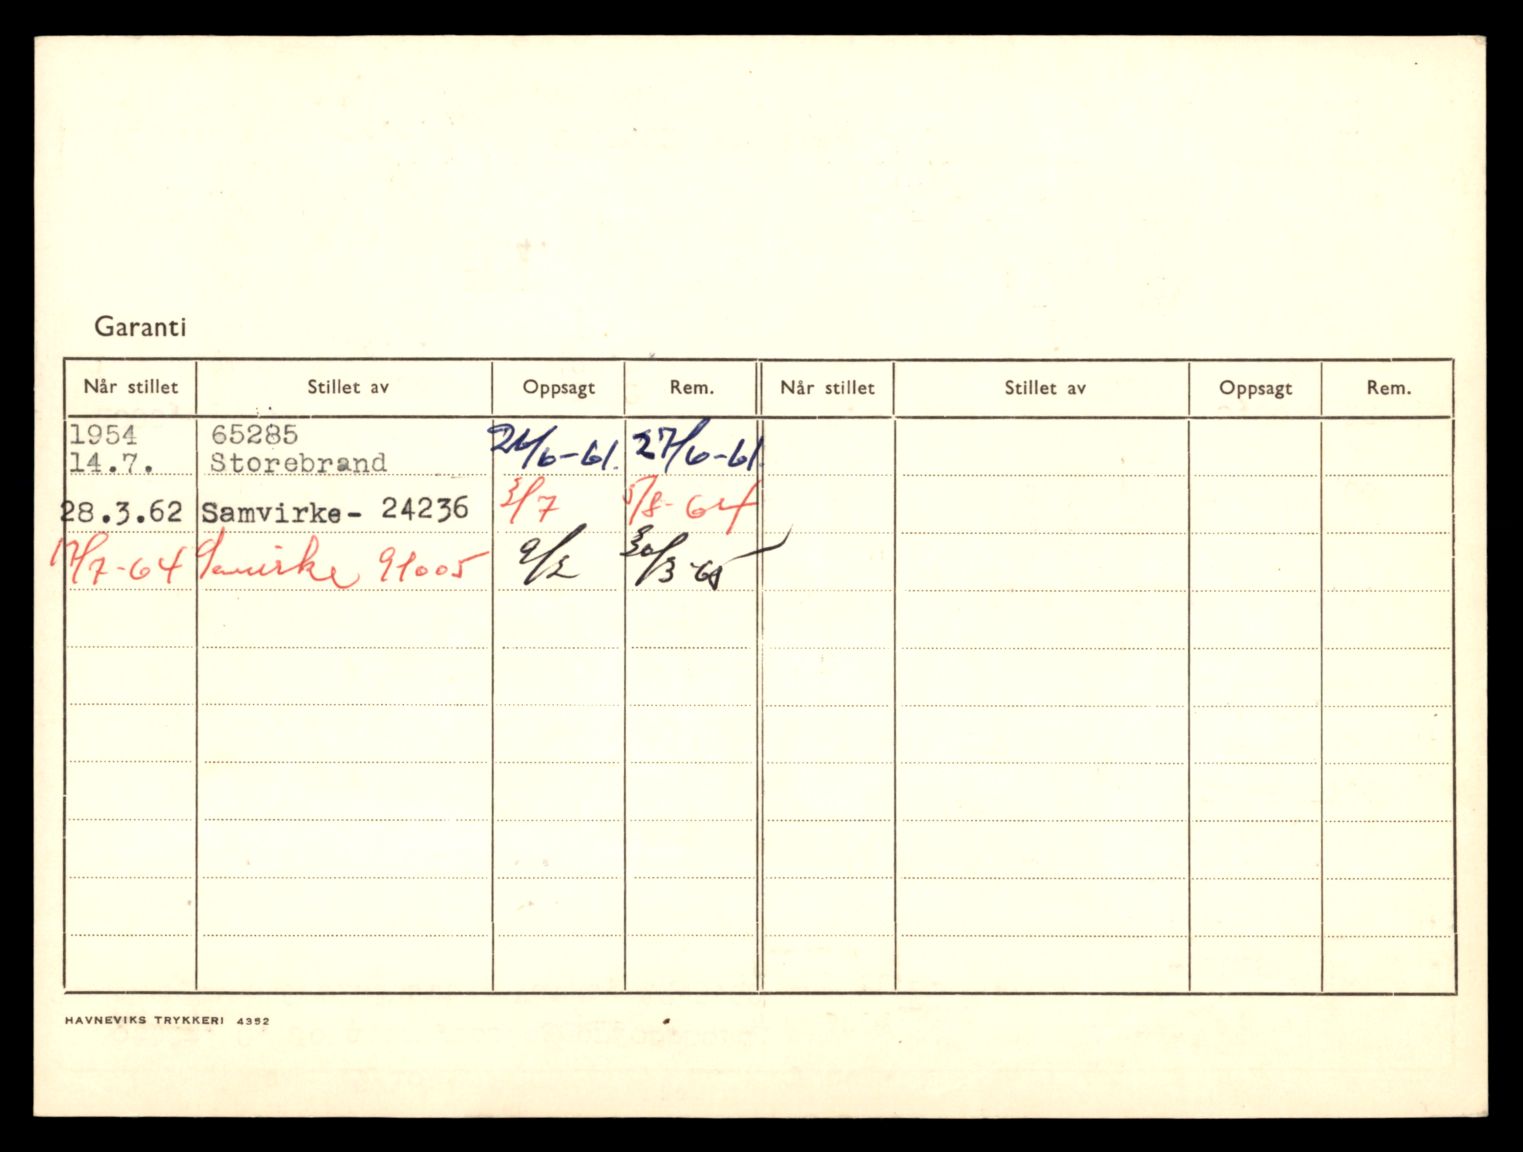 Garanti
Når stillet Stillet av Oppsagt Rem. Når stillet Stillet av Oppsagt Rem.
1954 65285
14.7. Storebrand 26/6-61. 27/6-61.
28.3.62 Samvirke- 24236 3/7 5/8-64
17/7-64 Samvirke 91005 9/2 30/3-65
HAVNEVIKS TRYKKERI 4352